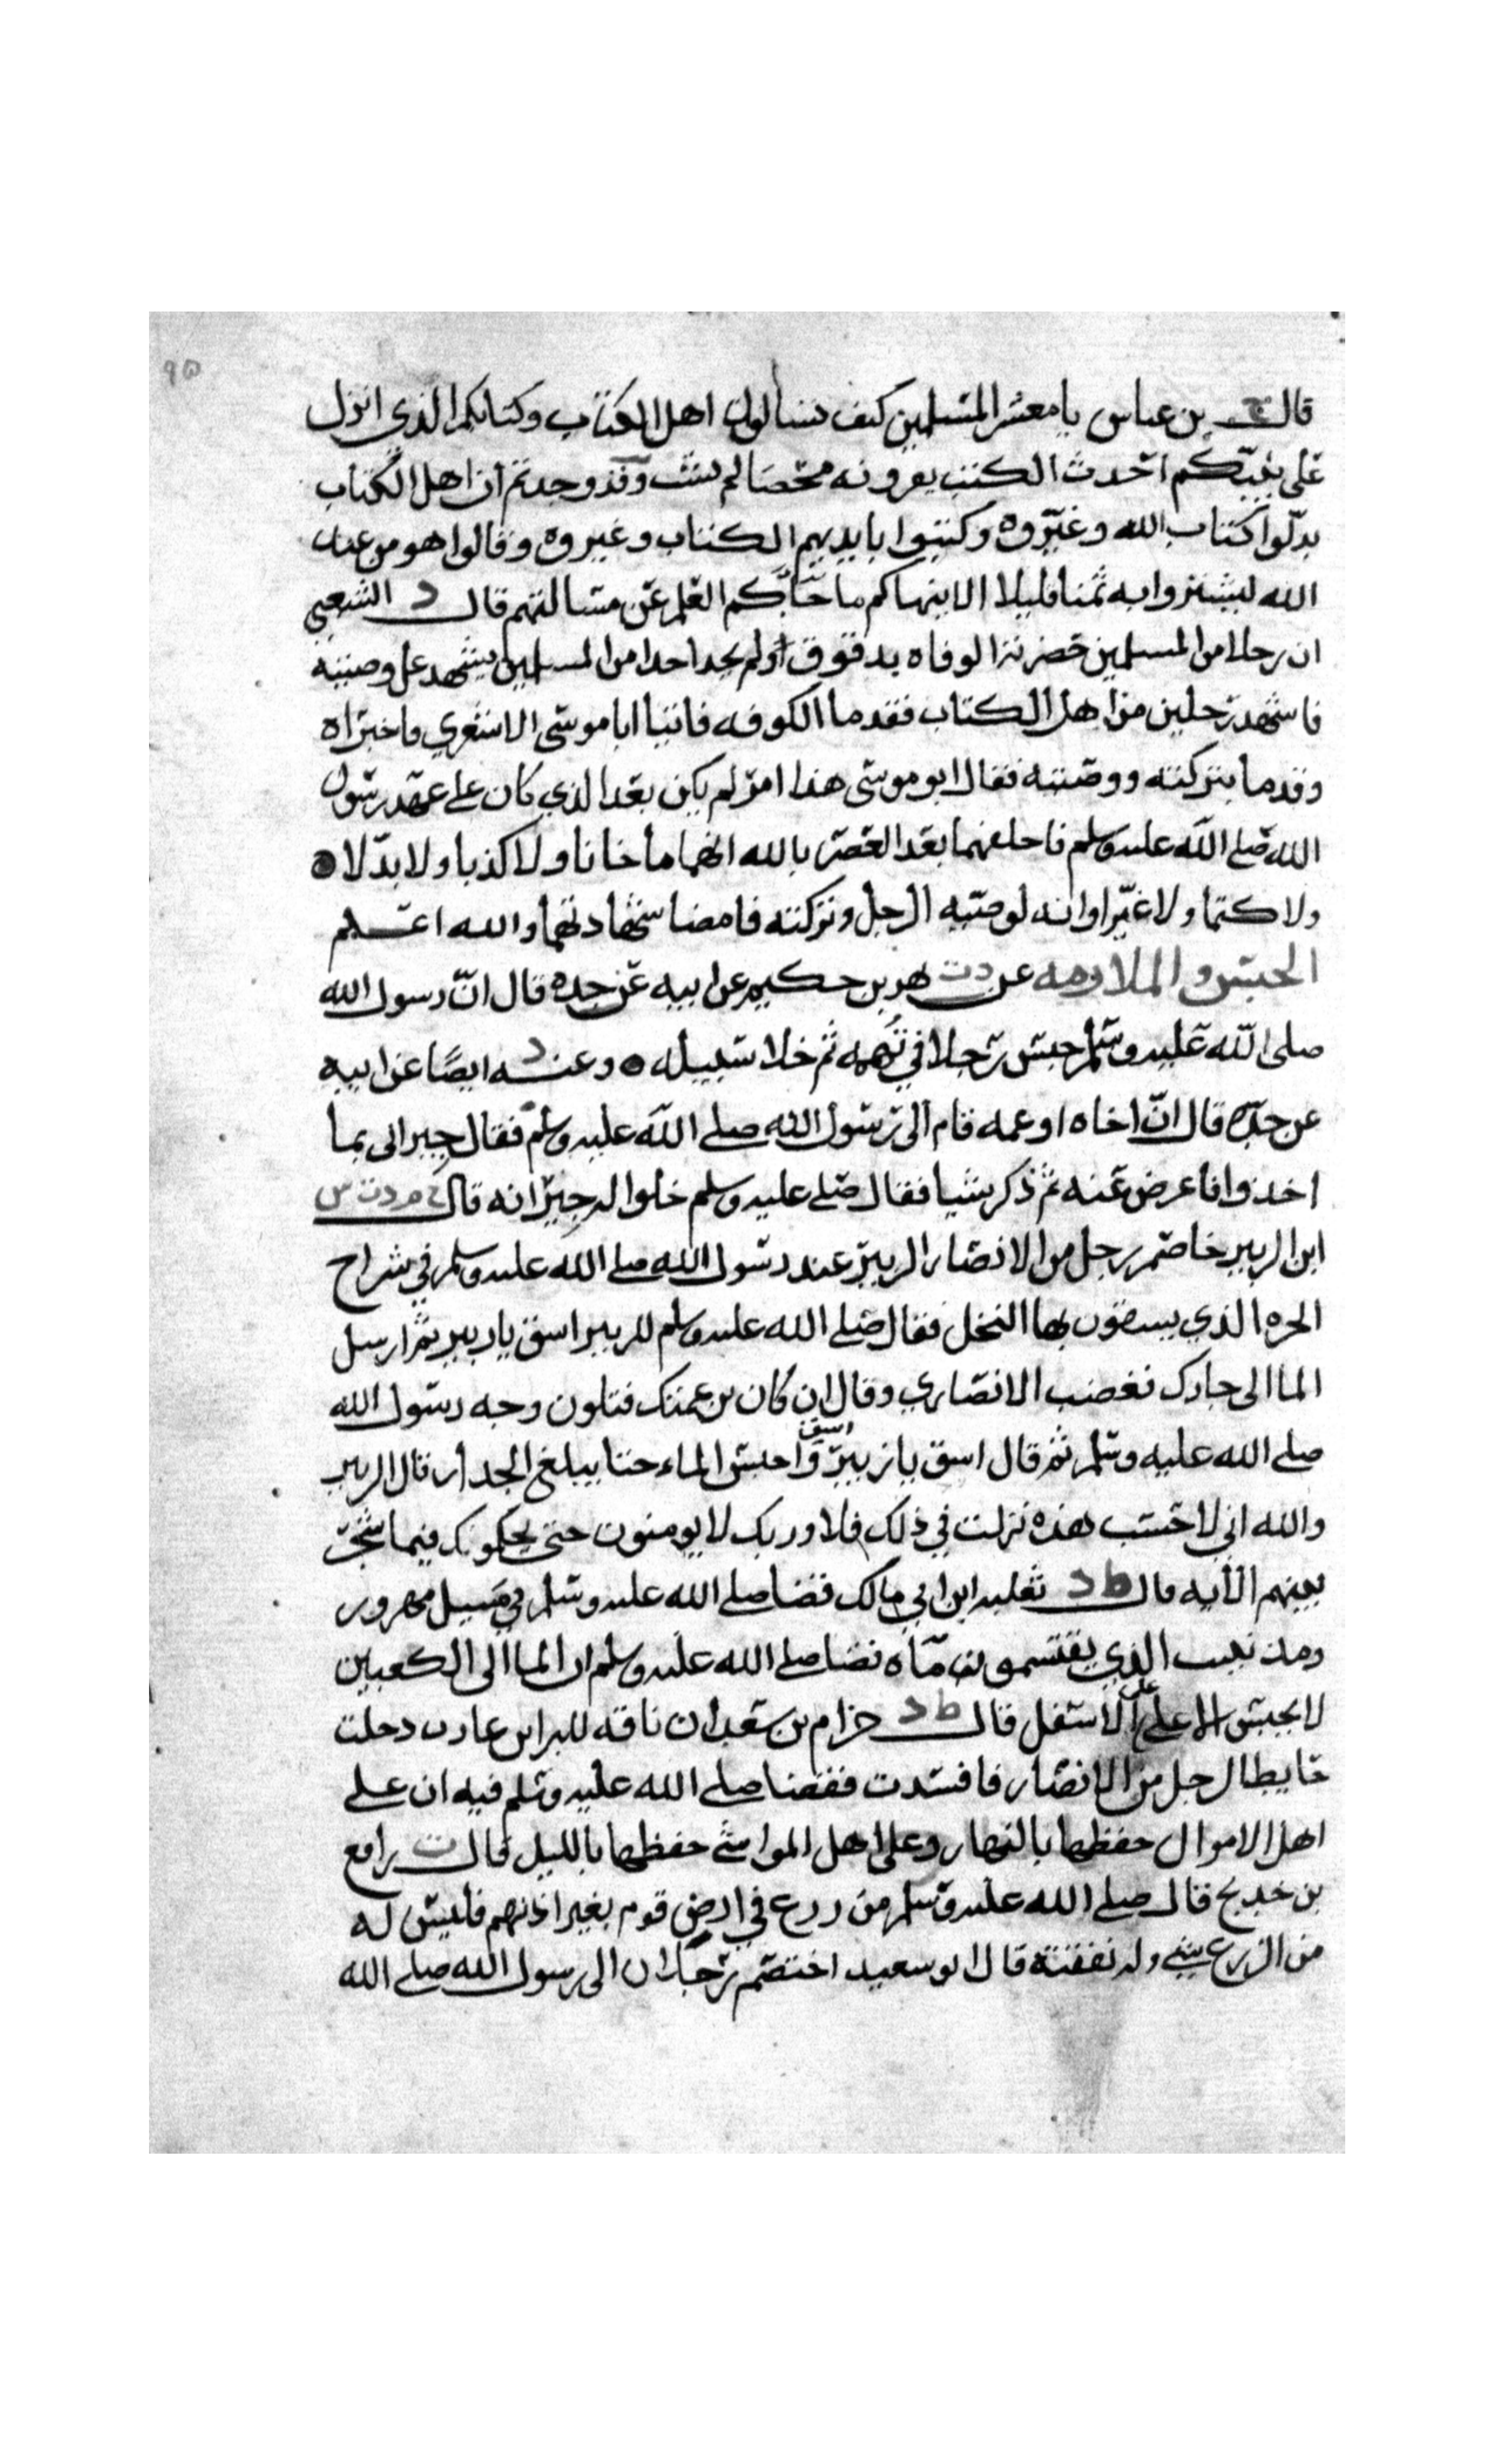 ٩٥
قال خ بن عباس يا معشر المسلمين كيف تسالون اهل الكتاب وكتابكم الذي انزل
على نبيّكم احدث الكتب يقرونه محضا لم يشب وقد وجدتم ان اهل الكتاب
بدّلوا كتاب الله وغيّروه وكتبوا بايديهم الكتاب وغيروه وقالوا هو من عند
الله ليشتروا به ثمنا قليلا الا ينهاكم ما جآكم العلم عن مسالتهم قال د الشعبي
ان رجلا من المسلمين حضرته الوفاه بدقوق اولم يجد احدا من المسلمين يشهد على وصيته
فاشهد رجلين من اهل الكتاب فقدما الكوفه فاتيا ابا موسى الاشعري فاخبراه
وقدما بتركته ووصيته فقال ابو موسى هذا امر لم يكن بعد الذي كان على عهد رسول
الله صلى الله عليه وسلم فاحلفهما بعد العصر بالله انهما ما خانا ولا كذبا ولا بدّلا
ولا كتما ولا غيّرا وانه لوصيه الرجل وتركته فامضا شهادتهما والله اعلم
الحبس و الملازمه عن دت بهز بن حكيم عن ابيه عن جده قال انّ رسول الله
صلى الله عليه وسلم حبس رجلا في تُهمه ثم خلا سبيله وعنه د ايضًا عن ابيه
عن جدّه قال انّ اخاه او عمه قام الى رسول الله صلى الله عليه وسلم فقال جيراني بما
اخذوا فاعرض عنه ثم ذكر شيا فقال صلى عليه وسلم خلوا له جيرانه قال خ م د ت س
ابن الزبير خاصم رجل من الانصار الزبير عند رسول الله صلى الله عليه وسلم في شراح
الحره الذي يسقون بها النخل فقال صلى الله عليه وسلم للزبير اسق يا زبير ثم ارسل
الما الى جارك فغضب الانصاري وقال ان كان بن عمتك فتلون وجه رسول الله
صلى الله عليه وسلم ثم قال اسق يا زبير اسق واحبس الماء حتا يبلغ الجدار قال الزبير
والله اني لاحسب هذه نزلت في ذلك فلا وربك لا يومنون حتى يحكمونك فيما شجر
بينهم الآيه قال ط د ثعلبه ابن ابي مالك قضا صلى الله عليه وسلم في مسيل مهزور
ومذنيب الذي يقتسمون مآه قضا صلى الله عليه وسلم ان الما الى الكعبين
لا يحبس الاعلى على الاسفل قال ط د حزام بن سعد ان ناقه للبرا بن عازب دخلت
حايطا لرجل من الانصار فافسدت فقضا صلى الله عليه وسلم فيه ان على
اهل الاموال حفظها بالنهار وعلى اهل المواشي حفظها بالليل قال ت رافع
بن خديج قال صلى الله عليه وسلم من زرع في ارض قوم بغير اذنهم فليس له
من الزرع شي وله نفقته قال ابو سعيد اختصم رجلان الى رسول الله صلى الله